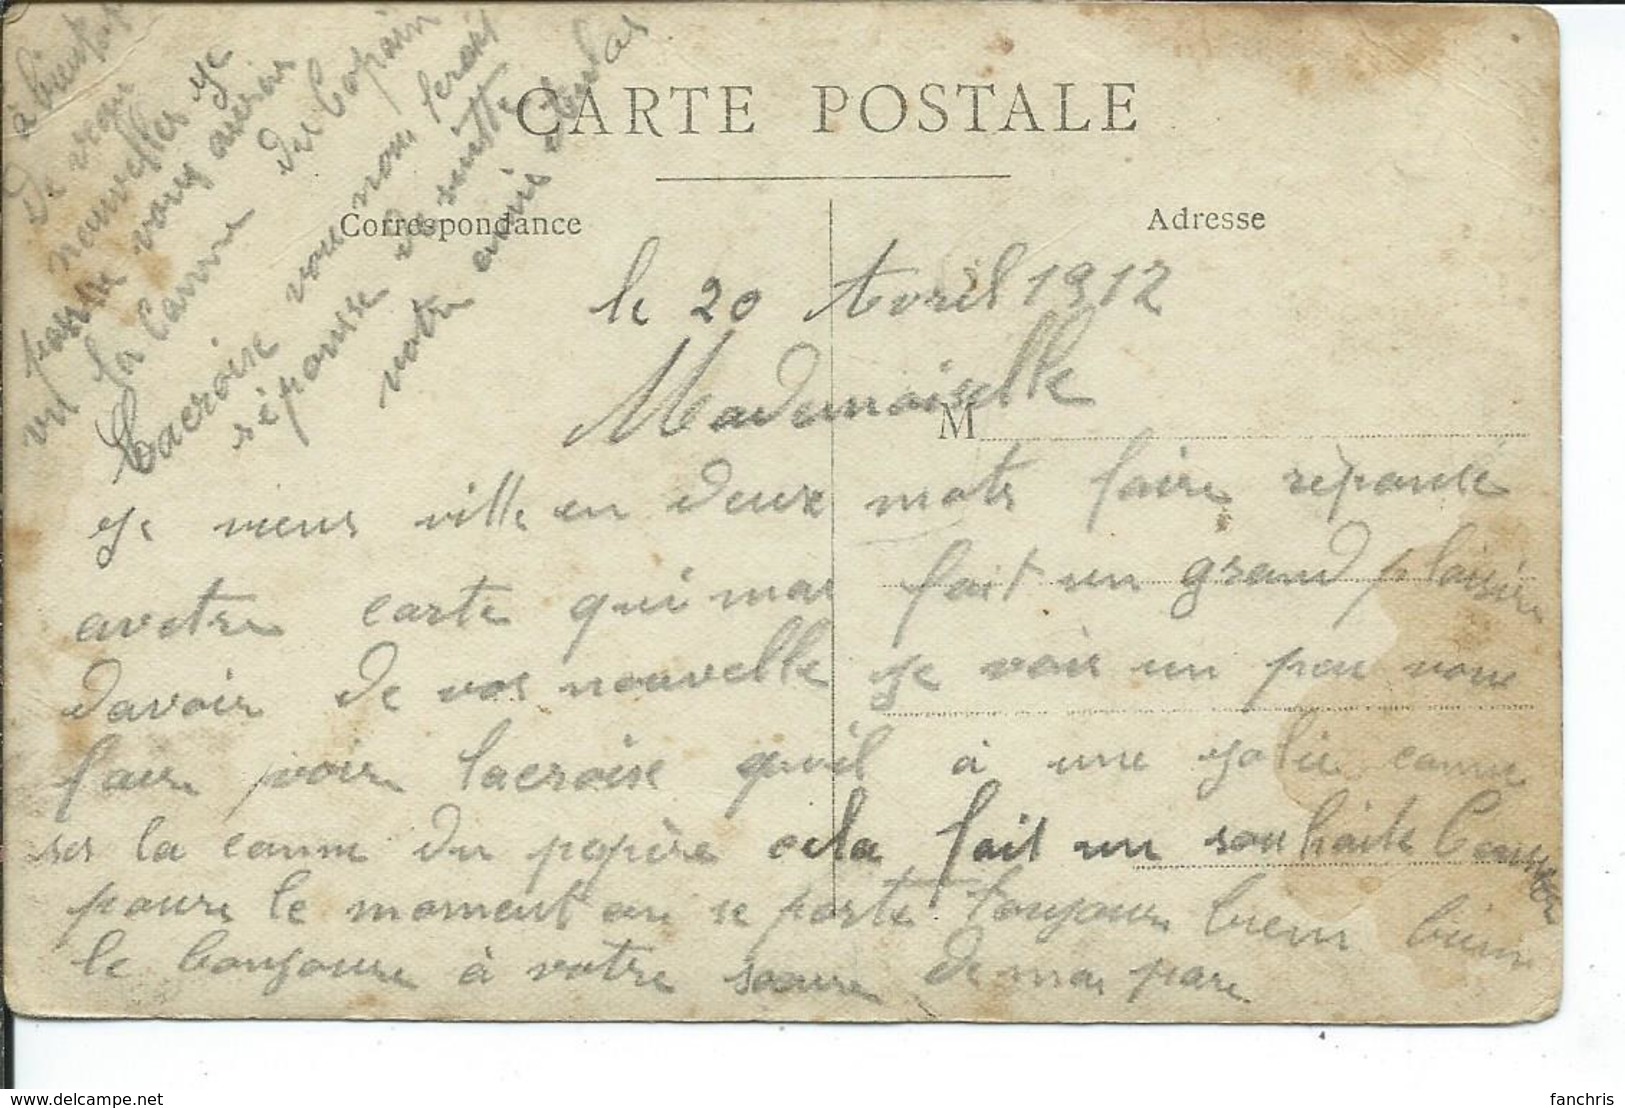 CARTE POSTALE
Correspondance
Adresse
M
le 20 Avril 1912
Mademoiselle
Je viens ville en deux mots faire réponse
avotre carte qui mas fait un grand plaisire
davoir de vos nouvelle je vais un peu vous
faire voir lacroise quil à une jolie canne
ses la canne du pepère cela fait un souhaite
poure le moment on se porte toujour bien bien
le bonjoure à votre soeure de ma pare
à bientot
de vrai
nouvelles je
pense vous averoir
vu la canne du Copain
Lacroise vous nous ferait
réponse de suitte
votre amis
www.delcampe.net
fanchris